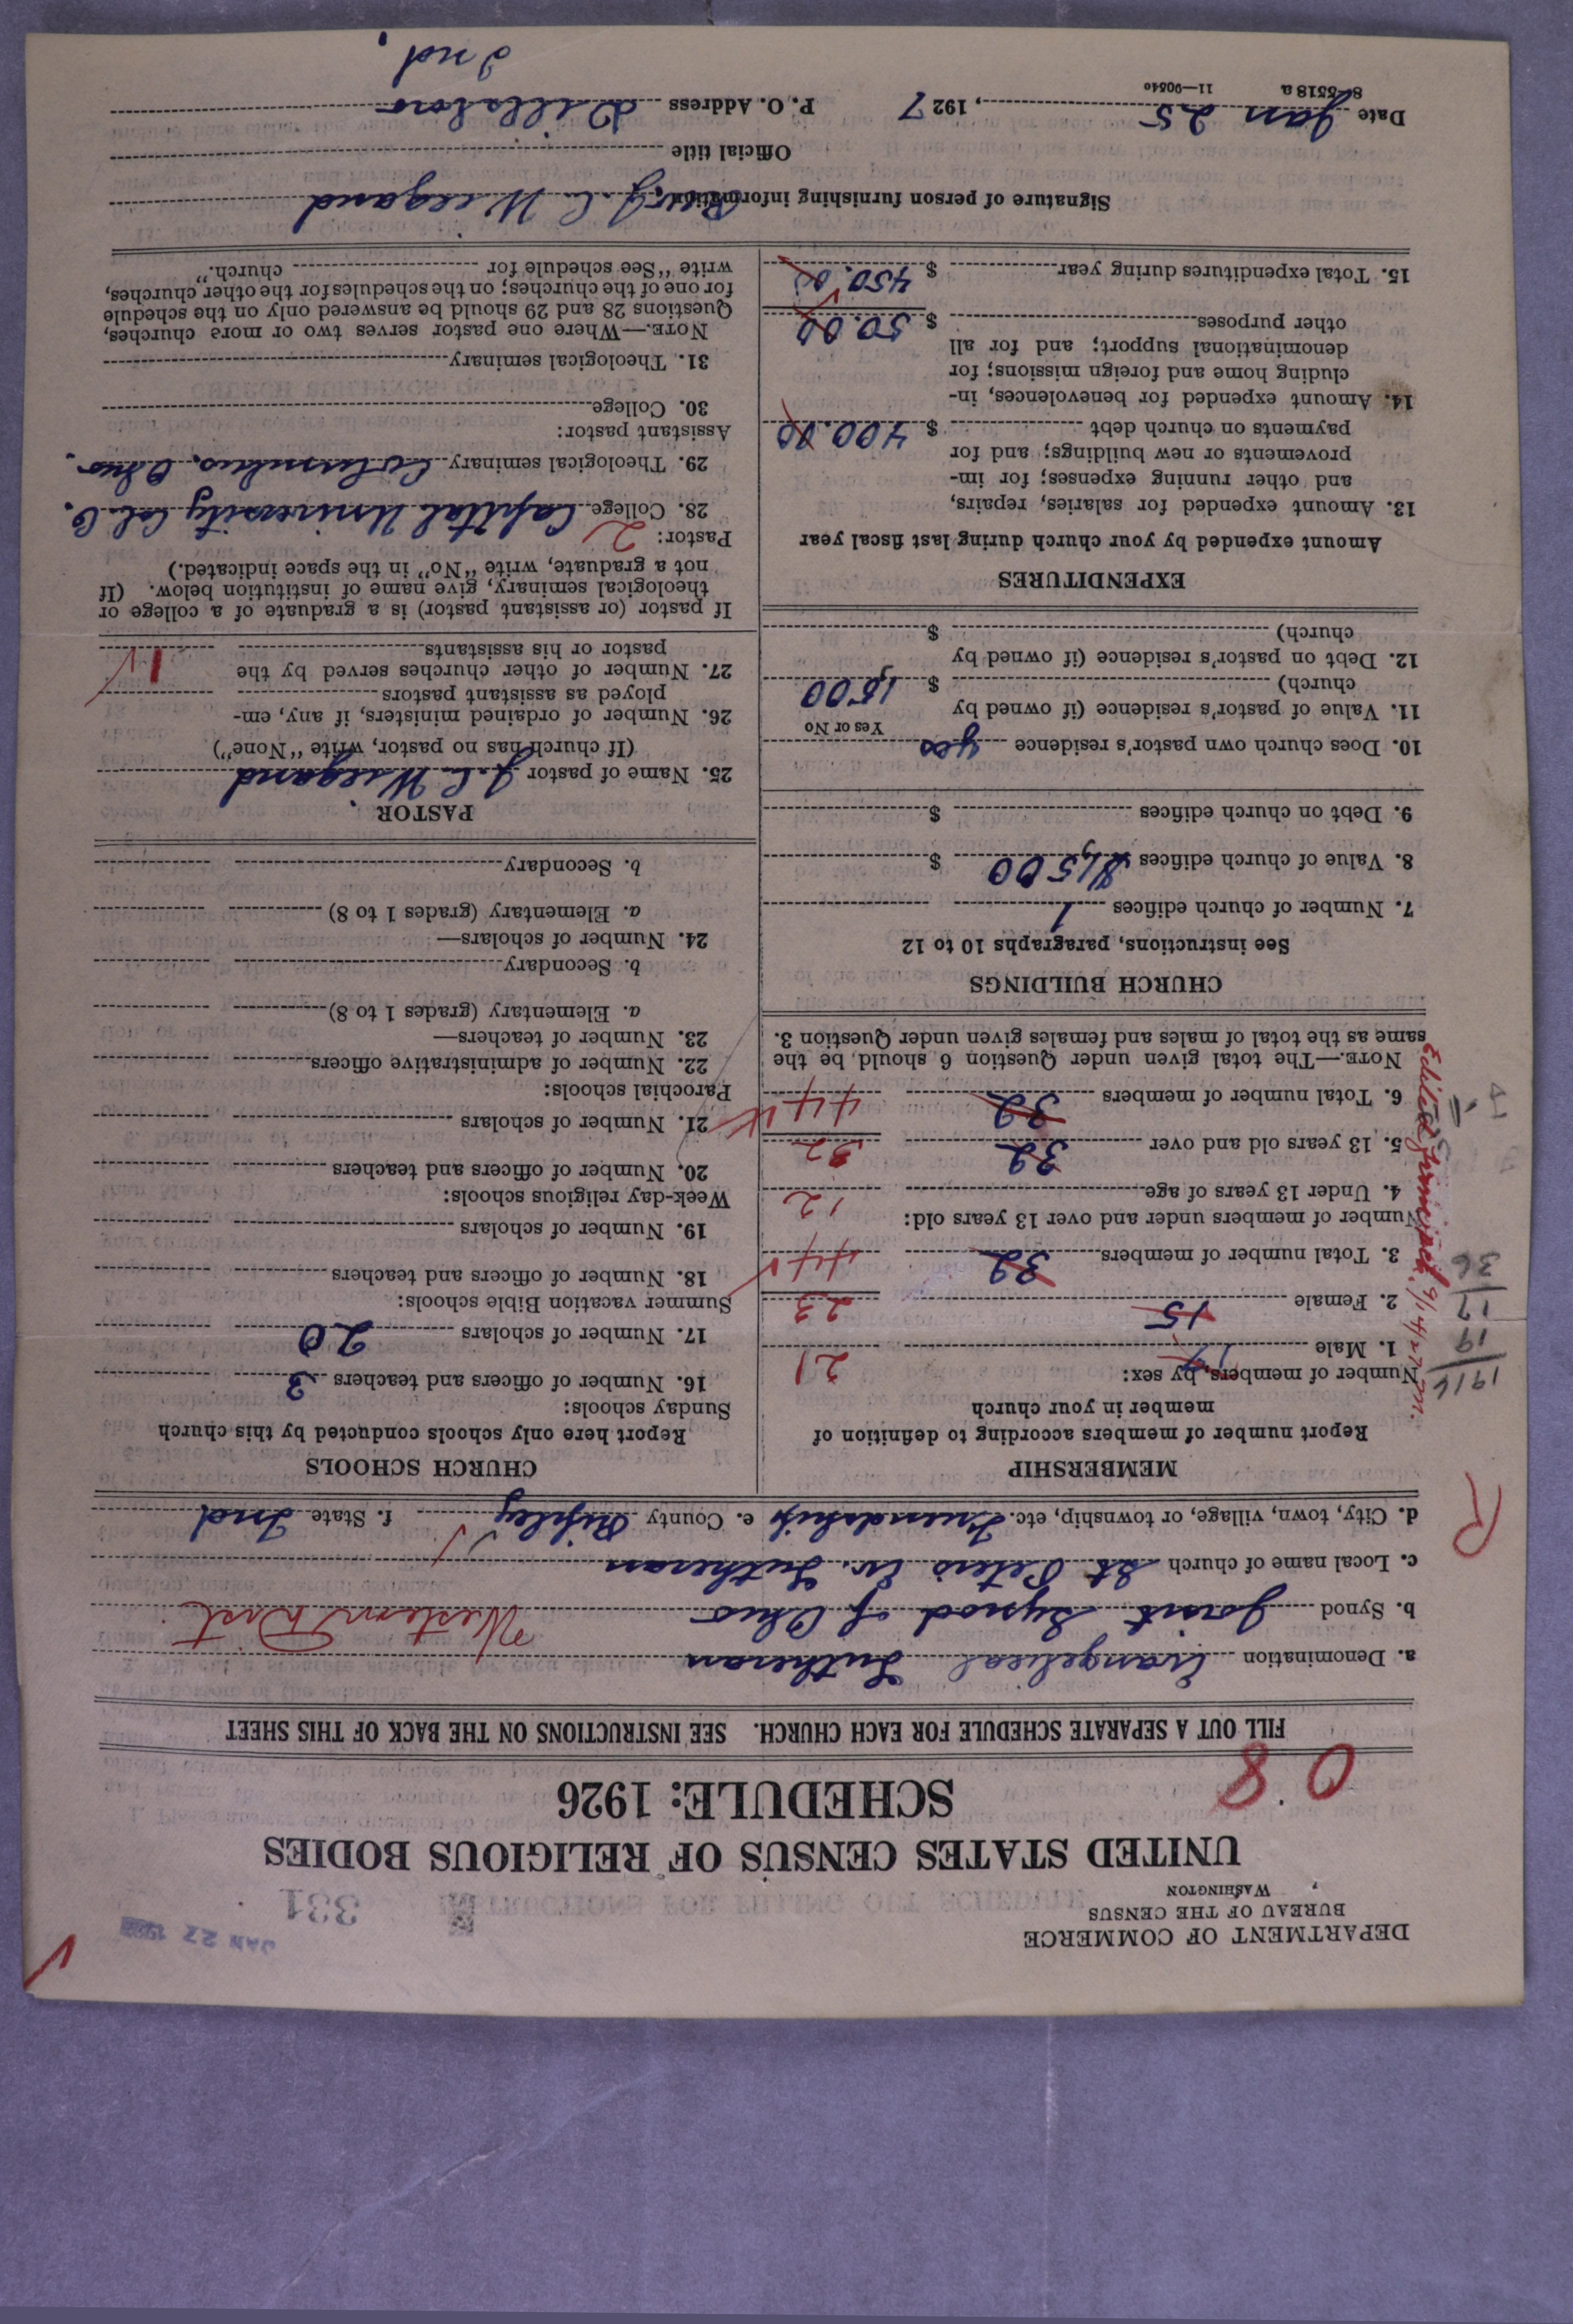 DEPARTMENT OF COMMERCE
BUREAU OF THE CENSUS
WASHINGTON
JAN 27
331
UNITED STATES CENSUS OF RELIGIOUS BODIES
SCHEDULE: 1926
0 8
FILL OUT A SEPARATE SCHEDULE FOR EACH CHURCH. SEE INSTRUCTIONS ON THE BACK OF THIS SHEET
a. Denomination Evangelical Lutheran
b. Synod Joint Synod of Ohio Western Dist
c. Local name of church St Peters Ev. Lutheran
d. City, town, village, or township, etc. Friendship e. County Ripley f. State Ind
R
MEMBERSHIP
Report number of members according to definition of
member in your church
Number of members, by sex:
1. Male 17 21
2. Female 15 23
3. Total number of members 32 44
Number of members under and over 13 years old:
4. Under 13 years of age 12
5. 13 years old and over 32 32
6. Total number of members 32 44
NOTE.—The total given under Question 6 should be the
same as the total of males and females given under Question 3.
1916
19
17
36
CHURCH BUILDINGS
See instructions, paragraphs 10 to 12
7. Number of church edifices 1
8. Value of church edifices $1,500 $
9. Debt on church edifices $
10. Does church own pastor's residence yes
Yes or No
11. Value of pastor's residence (if owned by
church) $ 1,500
12. Debt on pastor's residence (if owned by
church) $
EXPENDITURES
Amount expended by your church during last fiscal year
13. Amount expended for salaries, repairs,
and other running expenses; for im-
provements or new buildings; and for
payments on church debt $ 400.00
14. Amount expended for benevolences, in-
cluding home and foreign missions; for
denominational support; and for all
other purposes $ 50.00
15. Total expenditures during year $ 450.00
CHURCH SCHOOLS
Report here only schools conducted by this church
Sunday schools:
16. Number of officers and teachers 3
17. Number of scholars 20
Summer vacation Bible schools:
18. Number of officers and teachers
19. Number of scholars
Week-day religious schools:
20. Number of officers and teachers
21. Number of scholars
Parochial schools:
22. Number of administrative officers
23. Number of teachers—
a. Elementary (grades 1 to 8)
b. Secondary
24. Number of scholars—
a. Elementary (grades 1 to 8)
b. Secondary
PASTOR
25. Name of pastor J. C. Wiegand
(If church has no pastor, write "None")
26. Number of ordained ministers, if any, em-
ployed as assistant pastors
27. Number of other churches served by the
pastor or his assistants 1
If pastor (or assistant pastor) is a graduate of a college or
theological seminary, give name of institution below. (If
not a graduate, write "No" in the space indicated.)
Pastor: 2
28. College Capital University Col. O.
29. Theological seminary Columbus, Ohio.
Assistant pastor:
30. College
31. Theological seminary
NOTE.—Where one pastor serves two or more churches,
Questions 28 and 29 should be answered only on the schedule
for one of the churches; on the schedules for the other churches,
write "See schedule for church."
Signature of person furnishing information Rev. J. C. Wiegand
Official title
Date Jan 25, 1927 P. O. Address Dillsboro
Ind.
8-5518 a 11—90540